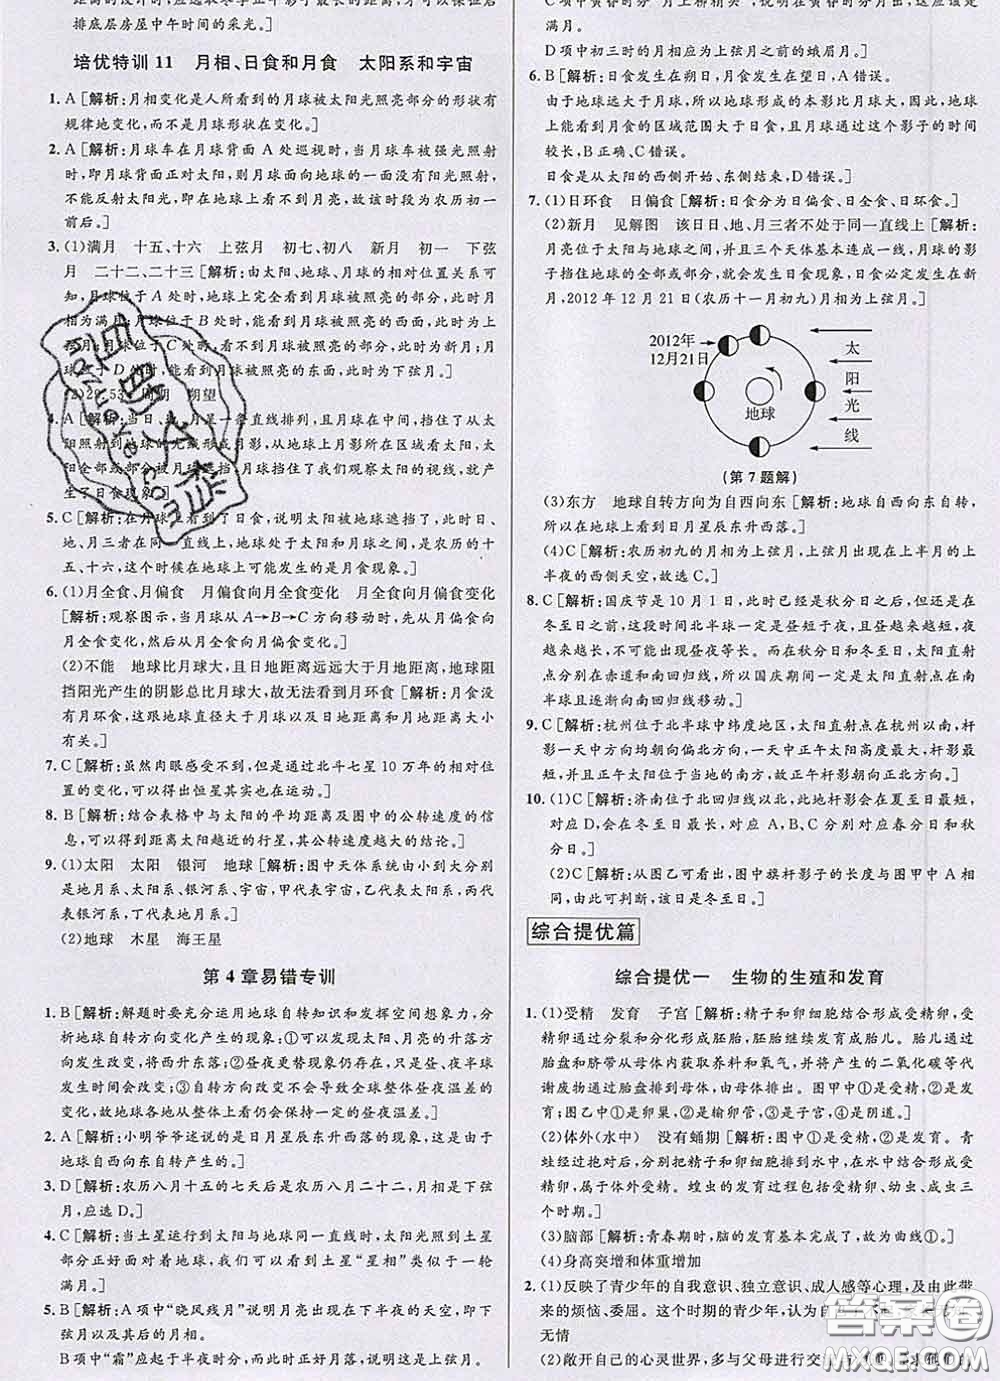 排底层房屋中午时间的采光。]
培优特训 11 月相、日食和月食 太阳系和宇宙
1. A [解析:月相变化是人所看到的月球被太阳光照亮部分的形状有
规律地变化,而不是月球形状在变化。]
2. A [解析:月球车在月球背面 A 处巡视时,当月球车被强光照射
时,即月球背面正对太阳,则月球面向地球的一面没有阳光照射,
不能反射太阳光,在地球上看不到月球,故该时段为农历初一
前后。]
3. (1)满月 十五、十六 上弦月 初七、初八 新月 初一 下弦
月 二十二、二十三 [解析:由太阳、地球、月球的相对位置关系可
知,月球位于 A 处时,地球上完全看到月球被照亮的部分,此时月
相为满月;月球位于 B 处时,能看到月球被照亮的西面,此时为上
弦月;月球位于 C 处时,看不到月球被照亮的部分,此时为新月;月
球位于 D 处时,能看到月球被照亮的东面,此时为下弦月。]
(2)29.53 周期 朔望
4. A [解析:当日、地、月呈一条直线排列,且月球在中间,挡住了从太
阳照到地球的光线形成月影,从地球上月影所在区域看太阳,太阳
全部或部分被月球遮挡,月球挡住了我们观察太阳的视线,就产
生了日食现象。]
5. C [解析:在月球上看到了日食,说明太阳被地球遮挡了,此时日、
地、月三者在同一直线上,地球在太阳和月球的中间,是农历的十
五、十六,这个时候在地球上可能发生的是月食现象。]
6. (1)月全食、月偏食 月偏食向月全食变化 月全食向月偏食变化
[解析:观察图示,当月球从A→B→C方向移动时,先从月偏食向
月全食变化,然后从月全食向月偏食变化。]
(2)不能 地球比月球大,且日地距离远远大于月地距离,地球阻
挡阳光产生的阴影总比月球大,故无法看到月环食 [解析:月食没
有月环食,这跟地球直径大于月球以及日地距离和月地距离大小
有关。]
7. C [解析:虽然肉眼感受不到,但是通过北斗七星 10 万年的相对位
置的变化,可以得出恒星其实也在运动。]
8. B [解析:结合表格中与太阳的平均距离及图中的公转速度的信
息,可以得到距离太阳越近的行星,其公转速度越大的结论。]
9. (1)太阳 太阳 银河 地球 [解析:图中天体系统由小到大分别
是地月系、太阳系、银河系、宇宙,甲代表宇宙,乙代表太阳系,丙代
表银河系,丁代表地月系。]
(2)地球 木星 海王星
第 4 章易错专训
1. B [解析:解题时要充分运用地球自转知识和发挥空间想象力,分
析地球自转方向变化产生的现象:①可以发现太阳、月亮的升落方
向发生改变,将西升东落;②昼夜更替现象仍存在,只是昼、夜半球
发生的时间会改变;③自转方向改变不会导致全球整体昼夜温差的
变化,故地球各地从整体上看仍会保持一定的昼夜温差。]
2. A [解析:小明爷爷述说的是日月星辰东升西落的现象,这是由于
地球自西向东自转产生的。]
3. D [解析:农历八月十五的七天后是农历八月二十二,月相是下弦
月,应选 D。]
4. C [解析:当土星运行到太阳与地球同一直线时,土星被太阳照亮
部分正好面对着地球,所以看到土星“星相”类似于一轮
满月。]
5. B [解析:A 项中“晓风残月”说明月亮出现在下半夜的天空,即下
弦月以及以后的月相。
B 项中“霜”应起于半夜时分,半夜时分正好落山的应该是上弦月。
C 项中“黄昏”“月上柳梢头”,说明在黄昏时分月亮升起,应为
满月。
D 项中初三时的月相应为上弦月之前的月相。]
6. B [解析:日食发生在朔日,月食发生在望日,A 错误。
由于地球远大于月球,所以地球形成的本影比月球大,因此,地球
上能看到月食的区域范围大于日食,且月球通过这个影子的时间
较长,B 正确、C 错误。
日食是从太阳的西侧开始、东侧结束,D 错误。]
7. (1)日环食 日偏食 [解析:日食分为日偏食、日全食、日环食。]
(2)新月 见解图 该日日、地、月三者不处于同一直线上 [解析:
月亮位于太阳与地球之间,并且三个天体基本连成一线,月球的影
子挡住地球的全部或部分,就会发生日食现象,日食必定发生在新
月,2012 年 12 月 21 日(农历十一月初九)月相为上弦月。]
2012年
12月21日
地球
太
阳
光
线
(第 7 题解)
(3)东方 地球自转方向为自西向东 [解析:地球自西向东自转,
所以在地球上看到日月星辰东升西落。]
(4)C [解析:农历初九的月相为上弦月,上弦月出现在上半月的上
半夜的西侧天空,故选 C。]
8. C [解析:国庆节是 10 月 1 日,此时已经是秋分日之后,但是还在
冬至日之前,这段时间北半球一定是昼短于夜,且昼越来越短,夜
越来越长,不可能出现昼夜等长。而在秋分日和冬至日,太阳直射
点分别在赤道和南回归线,所以国庆期间一定是太阳直射点在南
半球且逐渐向南回归线移动。]
9. C [解析:杭州位于北半球中纬度地区,太阳直射点在杭州以南,杆
影一天中方向均朝向偏北方向,一天中正午太阳高度最大,杆影最
短,正午太阳位于当地的南方,故正午杆影朝向正北方向。]
10. (1)C [解析:济南位于北回归线以北,此地杆影在夏至日最短,
对应 D,会在冬至日最长,对应 A,B、C 分别对应春分日和秋
分日。]
(2)C [解析:从图乙可看出,图中旗杆影子的长度与图甲中 A 相
同,由此可判断,该日是冬至日。]
综合提优篇
综合提优一 生物的生殖和发育
1. (1)受精 发育 子宫 [解析:精子和卵细胞结合形成受精卵,受精
卵通过分裂和分化形成胚胎,胚胎继续发育成胎儿。胎儿通过
胎盘和脐带从母体内获取养料和氧气,并将产生的二氧化碳等代
谢废物通过胎盘排到母体,由母体排出。图甲中①是受精,②是发
育;图乙中①是卵巢,②是输卵管,③是子宫,④是阴道。]
(2)体外(水中) 没有蛹期 [解析:图中①是受精,②是发育。青
蛙经过抱对,把精子和卵细胞排到水中,在水中结合形成受精卵,
所以属于体外受精。蝗虫的发育过程经过受精卵、幼虫、成虫三
个时期。]
(3)脑部 [解析:青春期时,脑的发育基本完成,故为曲线①。]
(4)身高突增和体重增加
2. (1)反映了青少年的自我意识、独立意识、成人感等心理,及由此带
来的烦恼、委屈。这个时期的青少年,认为自
无情
(2)敞开自己的心灵世界,多与父母进行交
答案圈
MXQE.COM